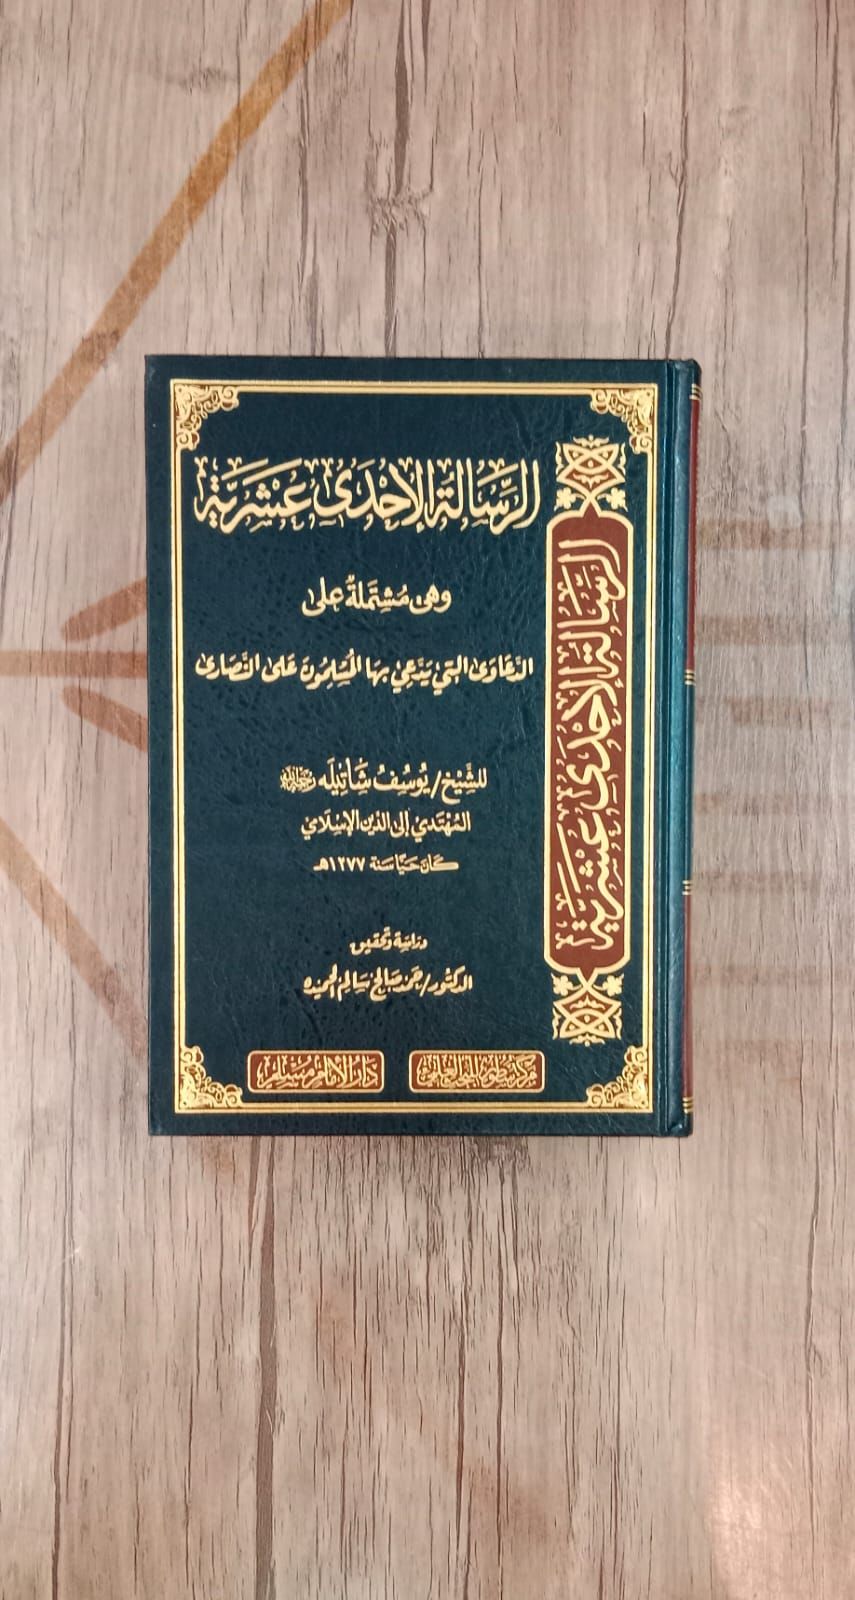 الرِّسَالَة الإِحْدَى عَشَرِيَّة
وهي مُشتَمِلةٌ على
الدَّعَاوَى التي يَدَّعِي بها المُسْلِمُونَ عَلَى النَّصَارى
للشَّيْخ/ يُوسُفُ شَاتِيلَه رحمه الله
المُهْتَدِي إلى الدِّين الإِسْلَامِي
كَانَ حَيًّا سَنَة ١٢٧٧هـ
دراسَة وتحقيق
الدكتور/ محمد صالح سالم الحميده
مركز سطور البحث العلمي
دَارُ الإِمَامِ مُسْلِمٍ
الرِّسَالَة الإِحْدَى عَشَرِيَّة